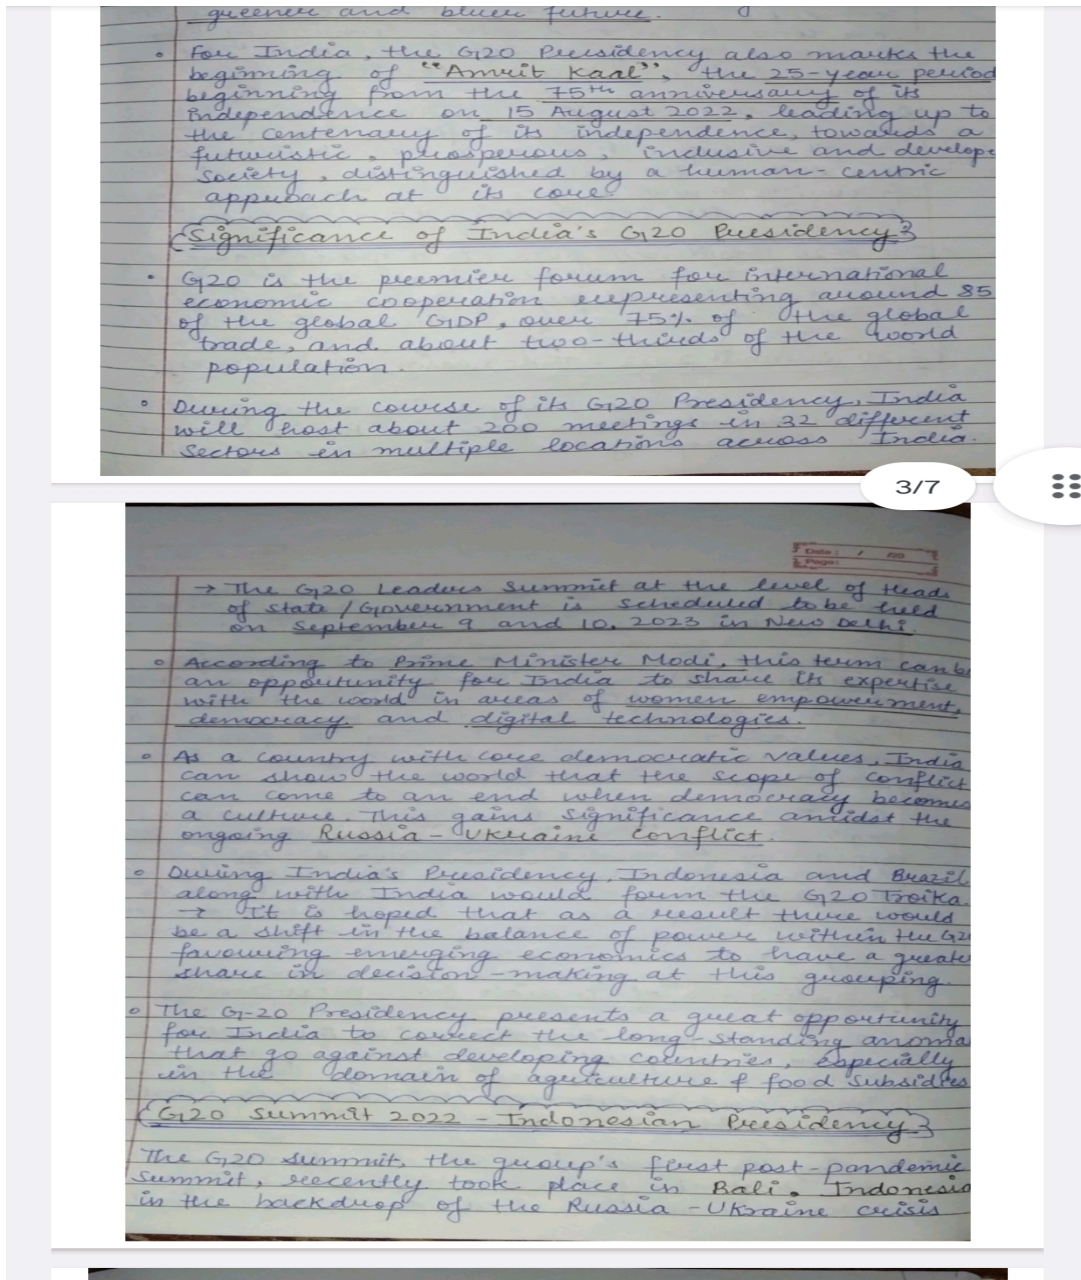 greener and bluer future.
• For India, the G20 Presidency also marks the
beginning of "Amrit Kaal", the 25-year period
beginning from the 75th anniversary of its
independence on 15 August 2022, leading up to
the centenary of its independence, towards a
futuristic, prosperous, inclusive and develope
society, distinguished by a human-centric
approach at its core.
Significance of India's G20 Presidency
• G20 is the premier forum for international
economic cooperation representing around 85
of the global GDP, over 75% of the global
trade, and about two-thirds of the world
population.
• During the course of its G20 Presidency, India
will host about 200 meetings in 32 different
Sectors in multiple locations across India.
3/7
Date : / /20
Page:
→ The G20 Leaders Summit at the level of Heads
of State / Government is scheduled to be held
on September 9 and 10, 2023 in New Delhi.
• According to Prime Minister Modi, this term can be
an opportunity for India to share its expertise
with the world in areas of women empowerment,
democracy and digital technologies.
• As a country with core democratic values, India
can show the world that the scope of conflict
can come to an end when democracy becomes
a culture. This gains significance amidst the
ongoing Russia-Ukraine Conflict.
• During India's Presidency, Indonesia and Brazil
along with India would form the G20 Troika.
→ It is hoped that as a result there would
be a shift in the balance of power within the G2
favouring emerging economics to have a greate
share in decision-making at this grouping.
• The G-20 Presidency presents a great opportunity
for India to correct the long-standing anoma
that go against developing countries, especially
in the domain of agriculture & food subsidies
G20 Summit 2022 - Indonesian Presidency
The G20 summit, the group's first post-pandemic
summit, recently took place in Bali, Indonesia
in the backdrop of the Russia-Ukraine crisis